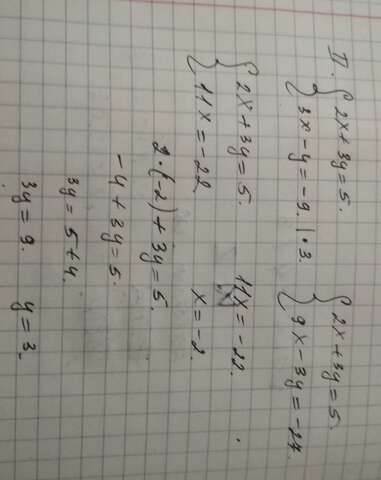 II. { 2x + 3y = 5. { 2x + 3y = 5.
{ 3x - y = -9. | · 3. { 9x - 3y = -27.
{ 2x + 3y = 5. 11x = -22.
{ 11x = -22. x = -2.
2 · (-2) + 3y = 5.
-4 + 3y = 5.
3y = 5 + 4.
3y = 9. y = 3.